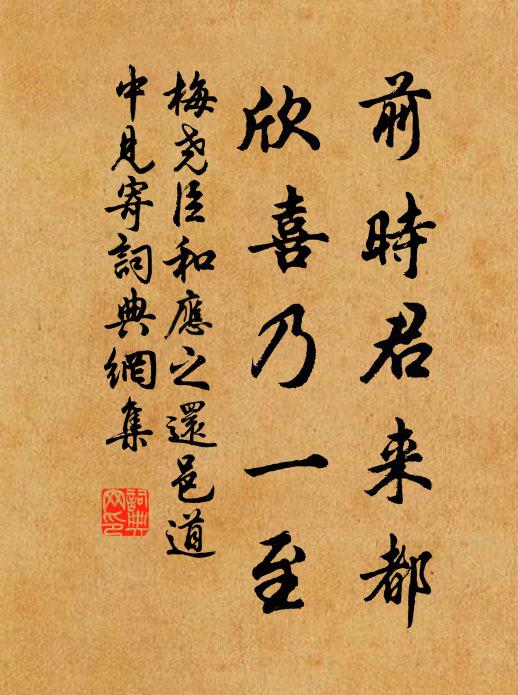 前時君来都
欣喜乃一至
梅尧臣和應之還邑道
中見寄詞典網集
詞典
网印